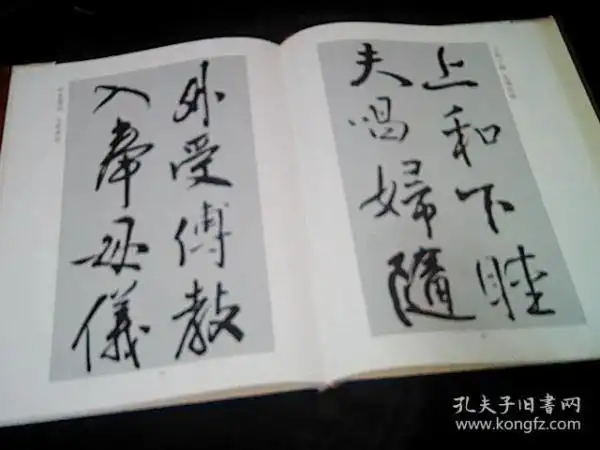 上和下睦
夫唱婦隨
外受傅教
入奉母儀
孔夫子旧書网
www.kongfz.com